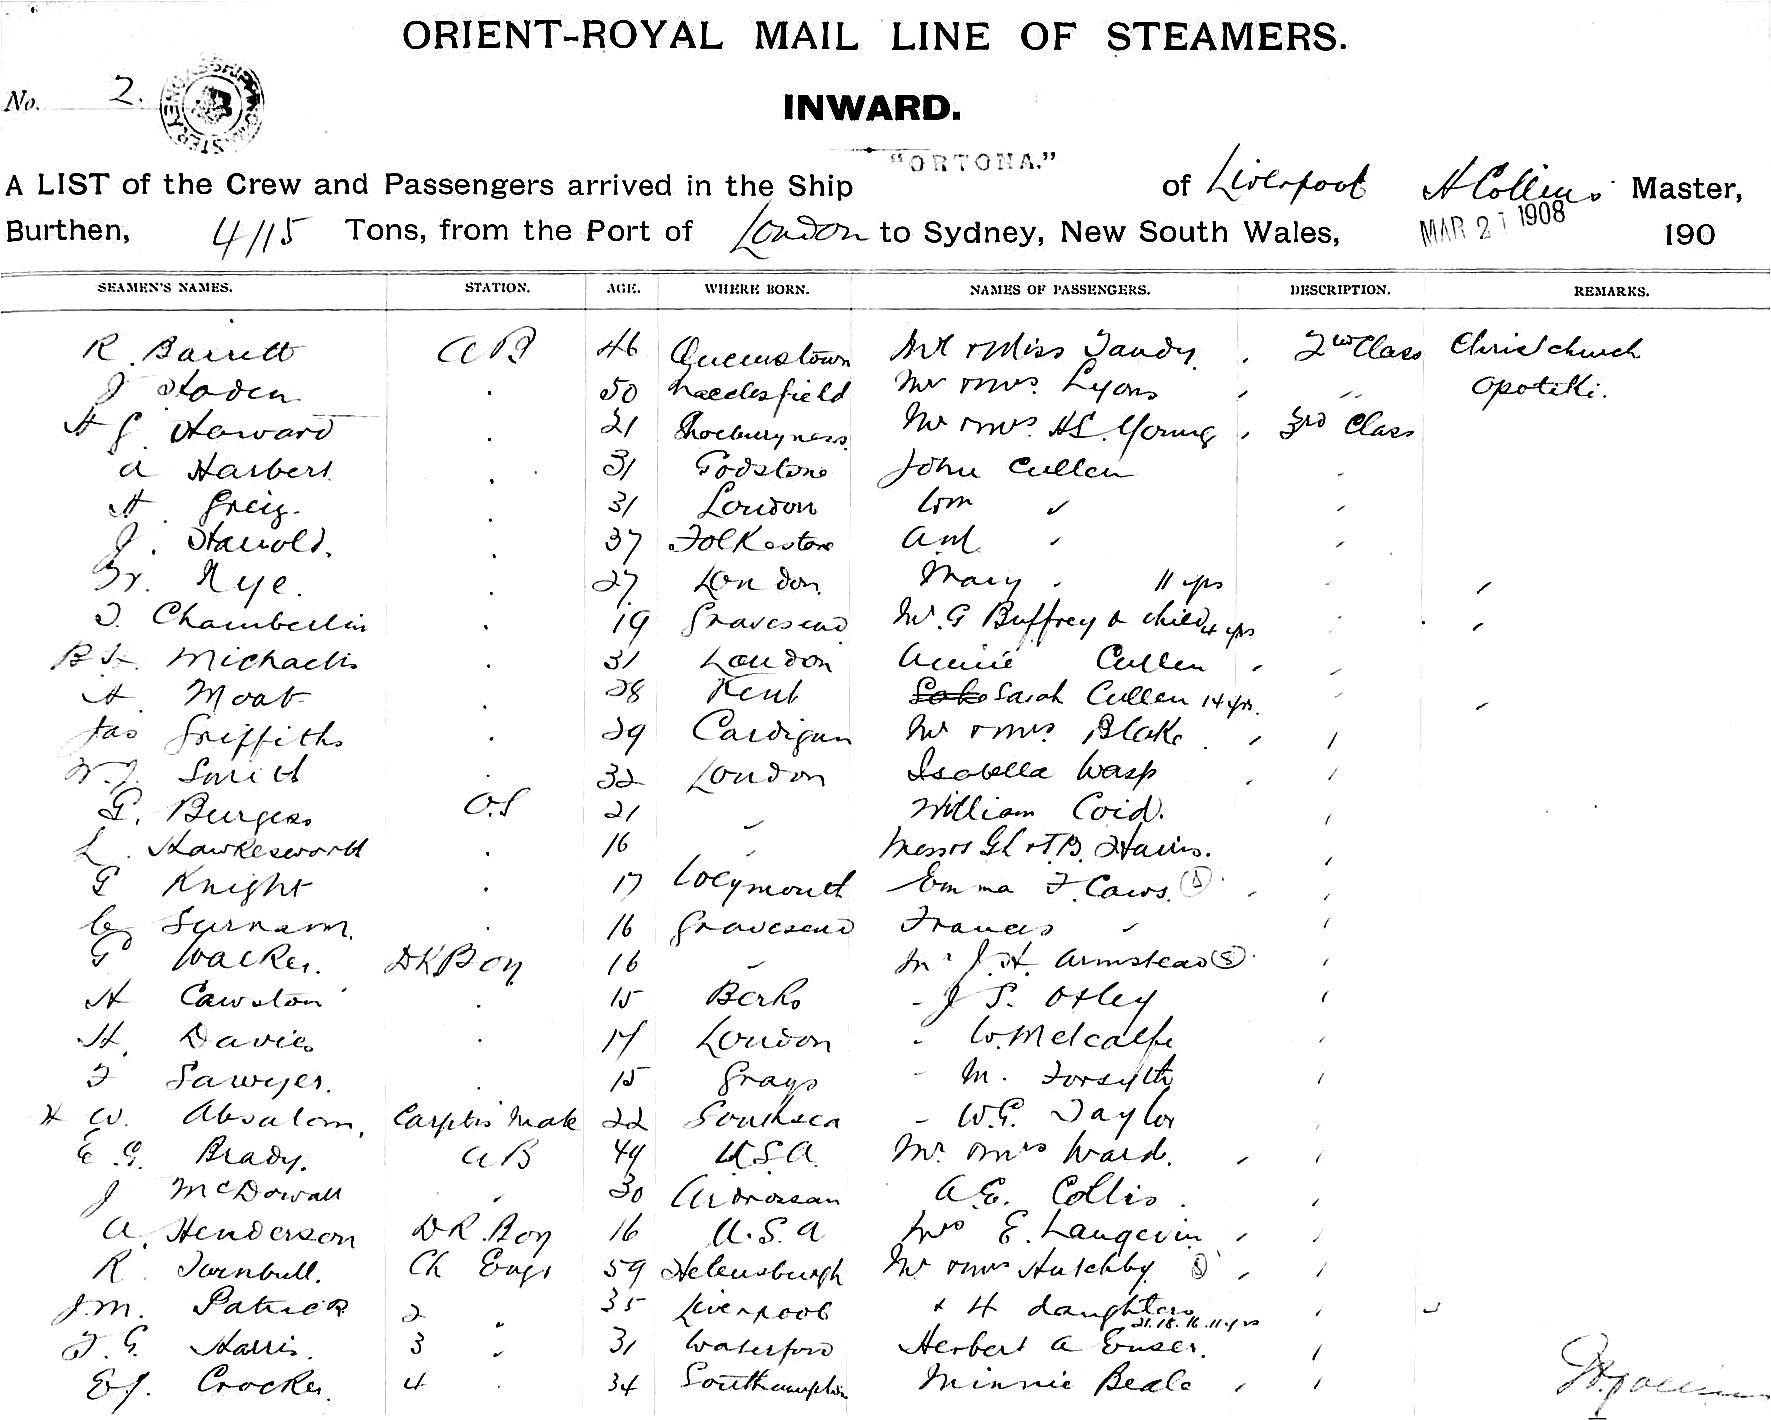 ORIENT-ROYAL MAIL LINE OF STEAMERS.
No. 2.
INWARD.
"ORTONA."
A LIST of the Crew and Passengers arrived in the Ship of Liverpool H Collins Master,
Burthen, 4115 Tons, from the Port of London to Sydney, New South Wales, MAR 21 1908 190
SEAMEN'S NAMES. STATION. AGE. WHERE BORN. NAMES OF PASSENGERS. DESCRIPTION. REMARKS.
R. Barrett AB 46 Queenstown Mr & Miss Tandy 2nd Class Christchurch
J 50 Macclesfield Mr & Mrs. Lyons " Opotiki.
H G Howard 21 Shoeburyness Mr & Mrs. Young 3rd Class
A Harbert 31 Godstone John Cullen
H. Greig. 31 London Wm "
J. Harrold. 37 Folkestone
Nye. 27 London. Mary " 11 yrs
Chamberlin 19 Gravesend G Buffrey & child 4 yrs
B H. Michaelis 31 London Annie Cullen
H Moat 28 Kent Sarah Cullen 14 yrs.
Jas Griffiths 29 Cardigan Mr & Mrs. Blake
W. J. Smith 32 London Isabella Wasp
G. Burgess O.S 21 " William Coid.
L. Hawkesworth 16 " Messrs
G Knight 17 Weymouth Emma F. Caws. (S)
16 Gravesend Frances "
G Walker. DK Boy 16 " Mr J. H. Armstead (S)
H Cawston 15 Berks " J S. Oxley
H. Davies 17 London " W. Metcalfe
F Sawyer. 15 Grays " M. Forsyth
W. Absalom, Carptrs Mate 22 Southsea " W.G. Taylor
E. G. Brady. AB 49 U.S.A. Mr. & Mrs Ward.
J McDowall " 30 Ardrossan A.E. Collis.
A. Henderson DK. Boy 16 U.S.A Mrs E. Langevin
R. Turnbull. Ch Engr 59 Helensburgh Mr & Mrs Hutchby (S)
J.M. Patrick 2 " 35 Liverpool & 4 daughters 21. 18. 16. 11 yrs
F. G. Harris. 3 " 31 Waterford Herbert A
E J. Crocker. 4 " 34 Southampton Minnie Beale